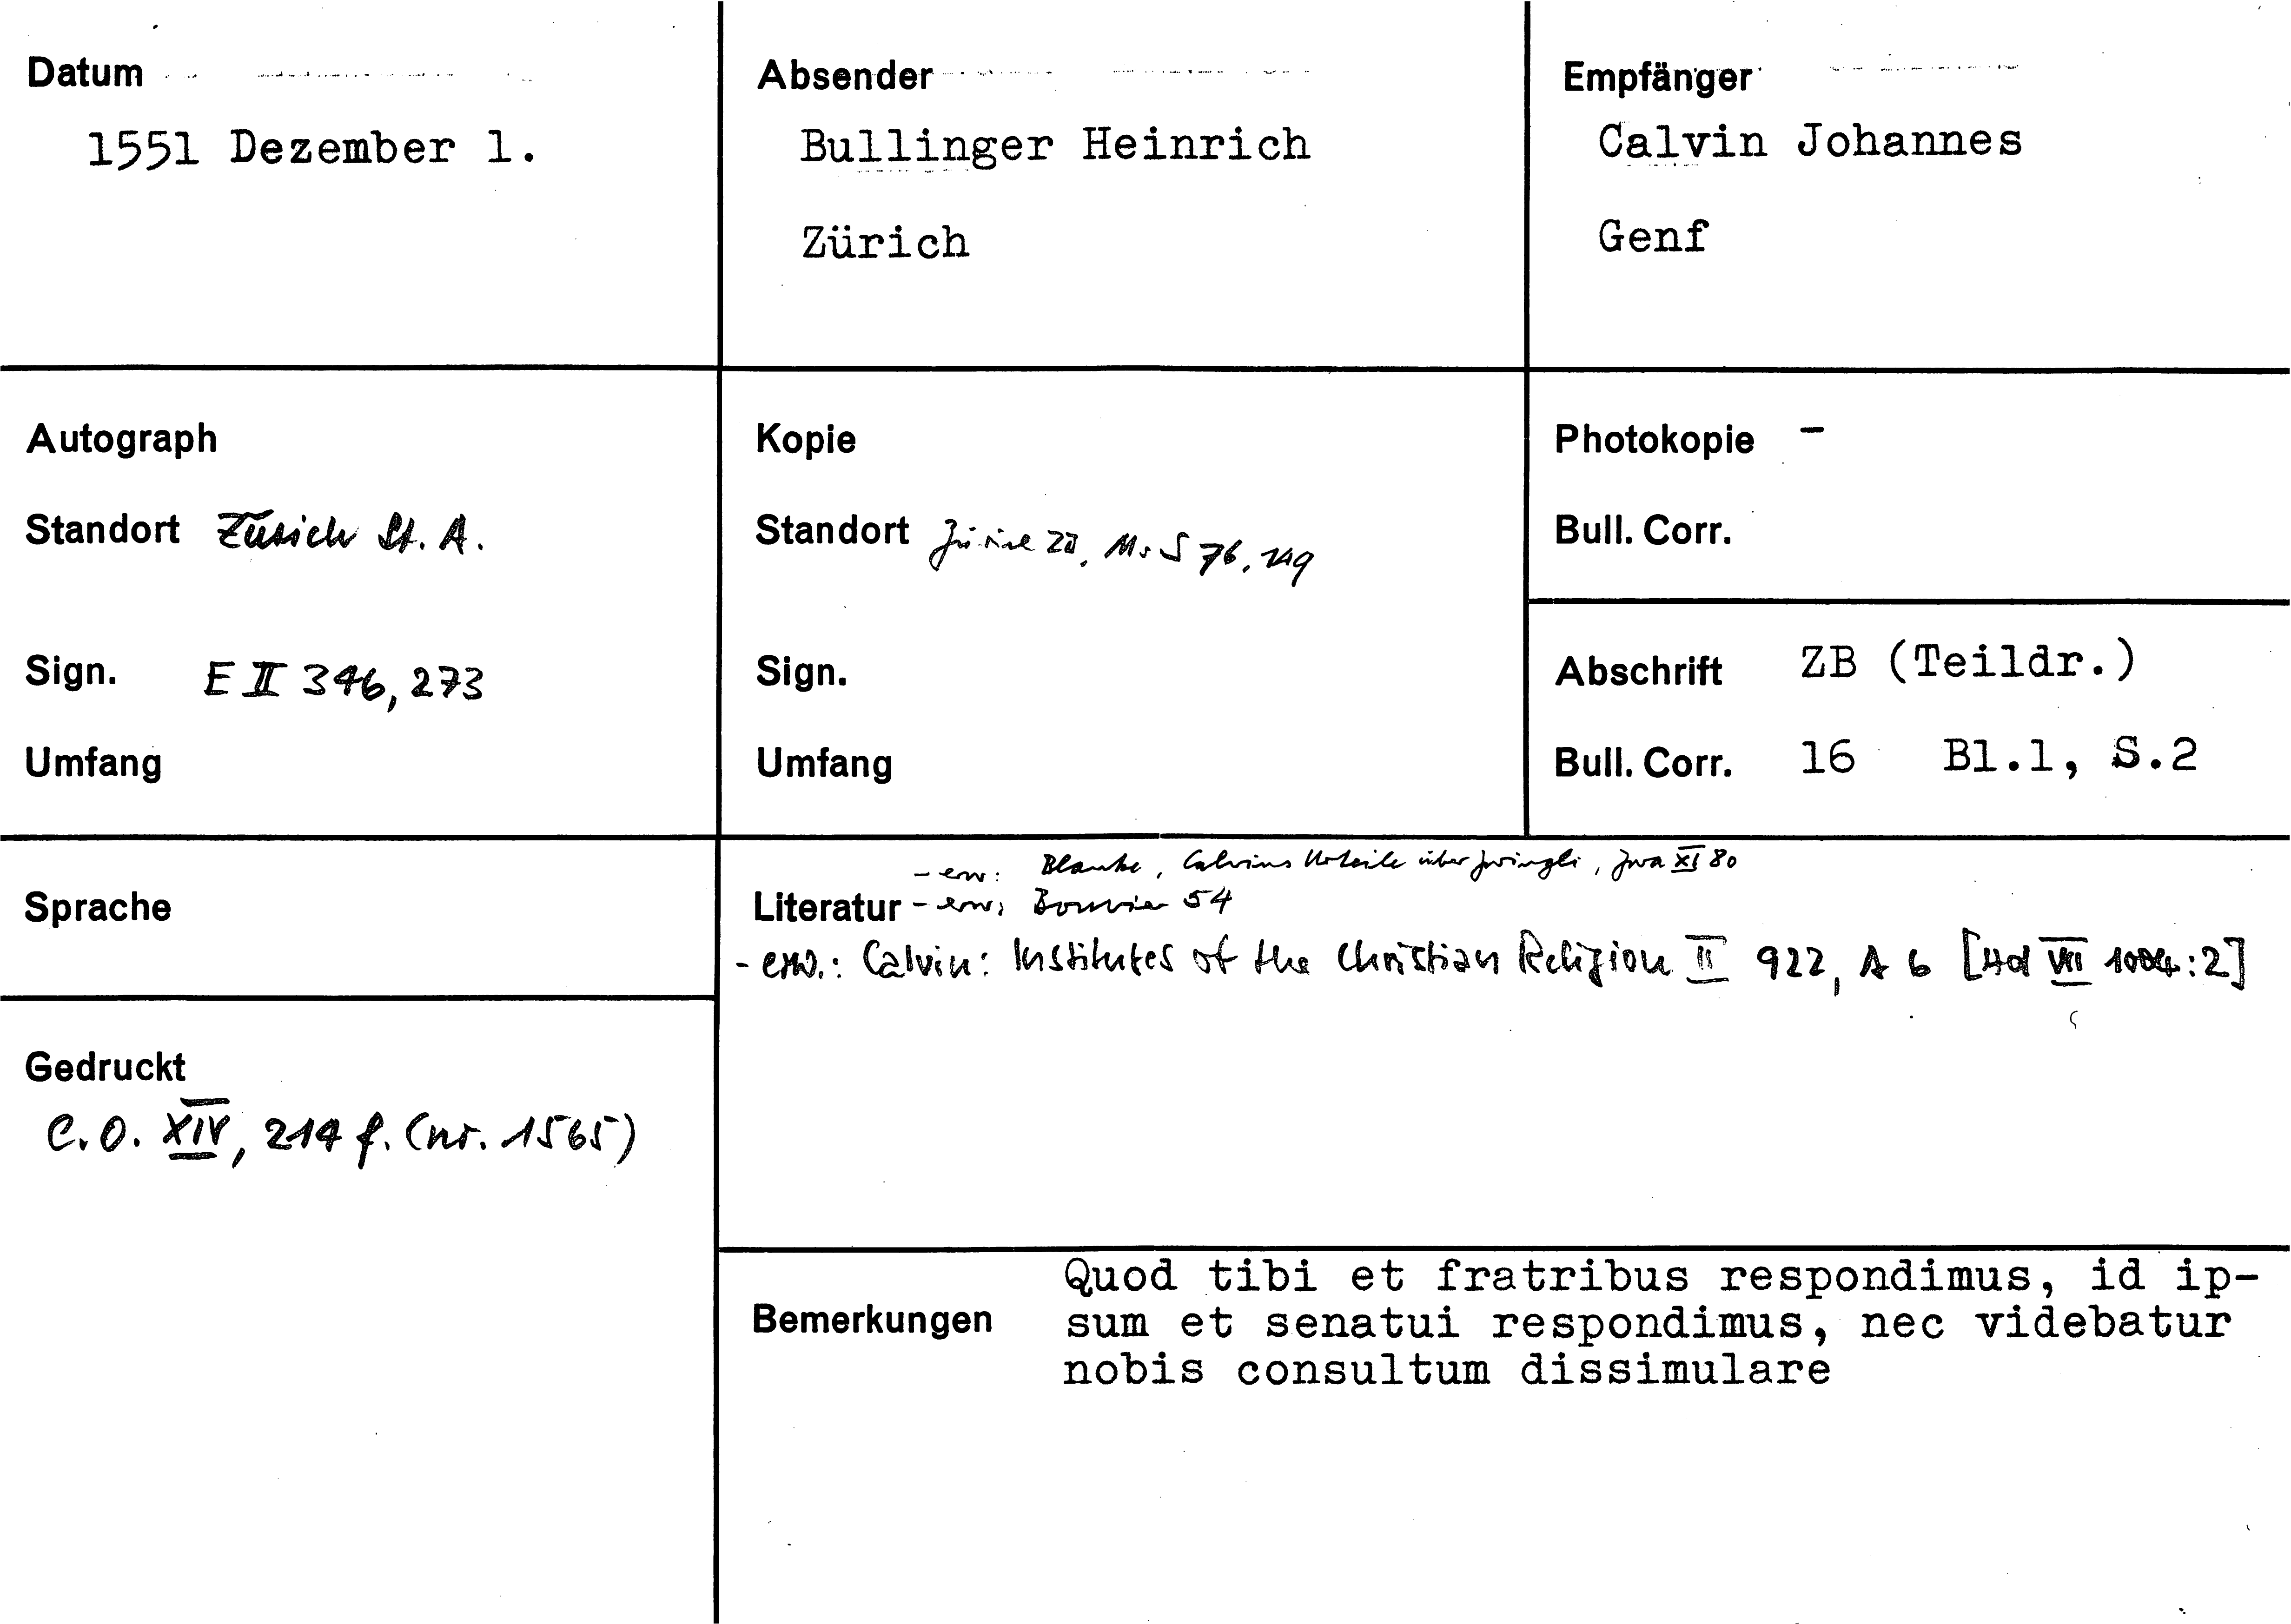 Datum
1551 Dezember 1.
Absender
Bullinger Heinrich
Zürich
Empfänger
Calvin Johannes
Genf
Autograph
Standort Zürich St. A.
Sign. E II 346, 273
Umfang
Kopie
Standort Zürich ZB, Ms S 76, 149
Sign.
Umfang
Photokopie -
Bull. Corr.
Abschrift ZB (Teildr.)
Bull. Corr. 16 Bl.1, S.2
Sprache
Gedruckt
C.O. XIV, 214 f. (nr. 1565)
- erw: Blanke, Calvins Urteile über Zwingli, Zwa XI 80
Literatur - erw: Bouvier 54
- erw.: Calvin: Institutes of the Christian Religion II 922, A 6 [HD VIII 1004:2]
Bemerkungen
Quod tibi et fratribus respondimus, id ip-
sum et senatui respondimus, nec videbatur
nobis consultum dissimulare